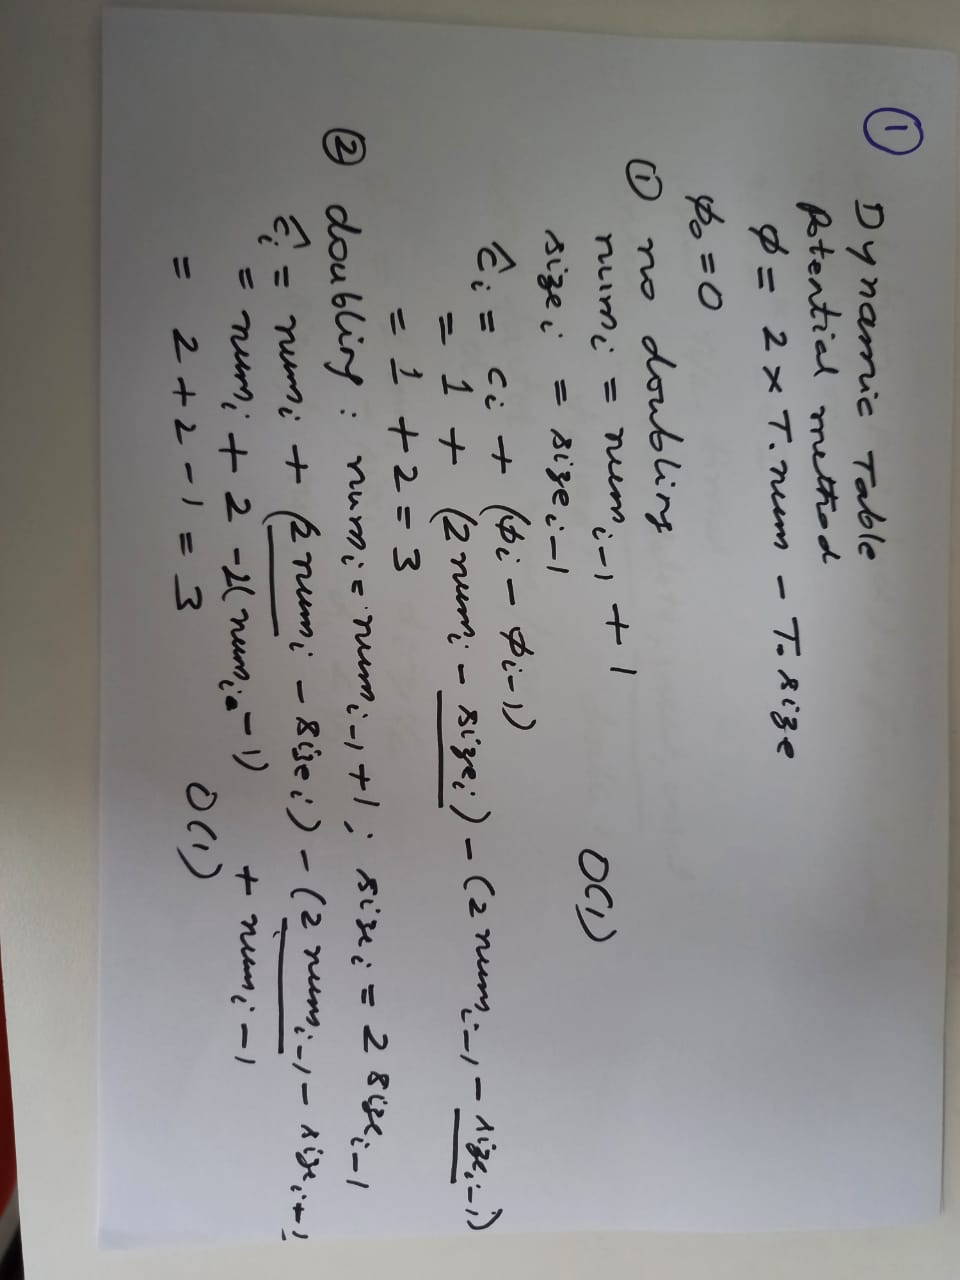 ①
Dynamic Table
Potential method
ϕ = 2 × T.num − T.size
ϕ₀ = 0
① no doubling
numᵢ = numᵢ₋₁ + 1
O(1)
sizeᵢ = sizeᵢ₋₁
ĉᵢ = cᵢ + (ϕᵢ − ϕᵢ₋₁)
= 1 + (2 numᵢ − sizeᵢ) − (2 numᵢ₋₁ − sizeᵢ₋₁)
= 1 + 2 = 3
② doubling : numᵢ = numᵢ₋₁ + 1 ; sizeᵢ = 2 sizeᵢ₋₁
ĉᵢ = numᵢ + (2 numᵢ − sizeᵢ) − (2 numᵢ₋₁ − sizeᵢ₋₁)
= numᵢ + 2 − 2(numᵢ − 1) + numᵢ − 1
= 2 + 2 − 1 = 3 O(1)